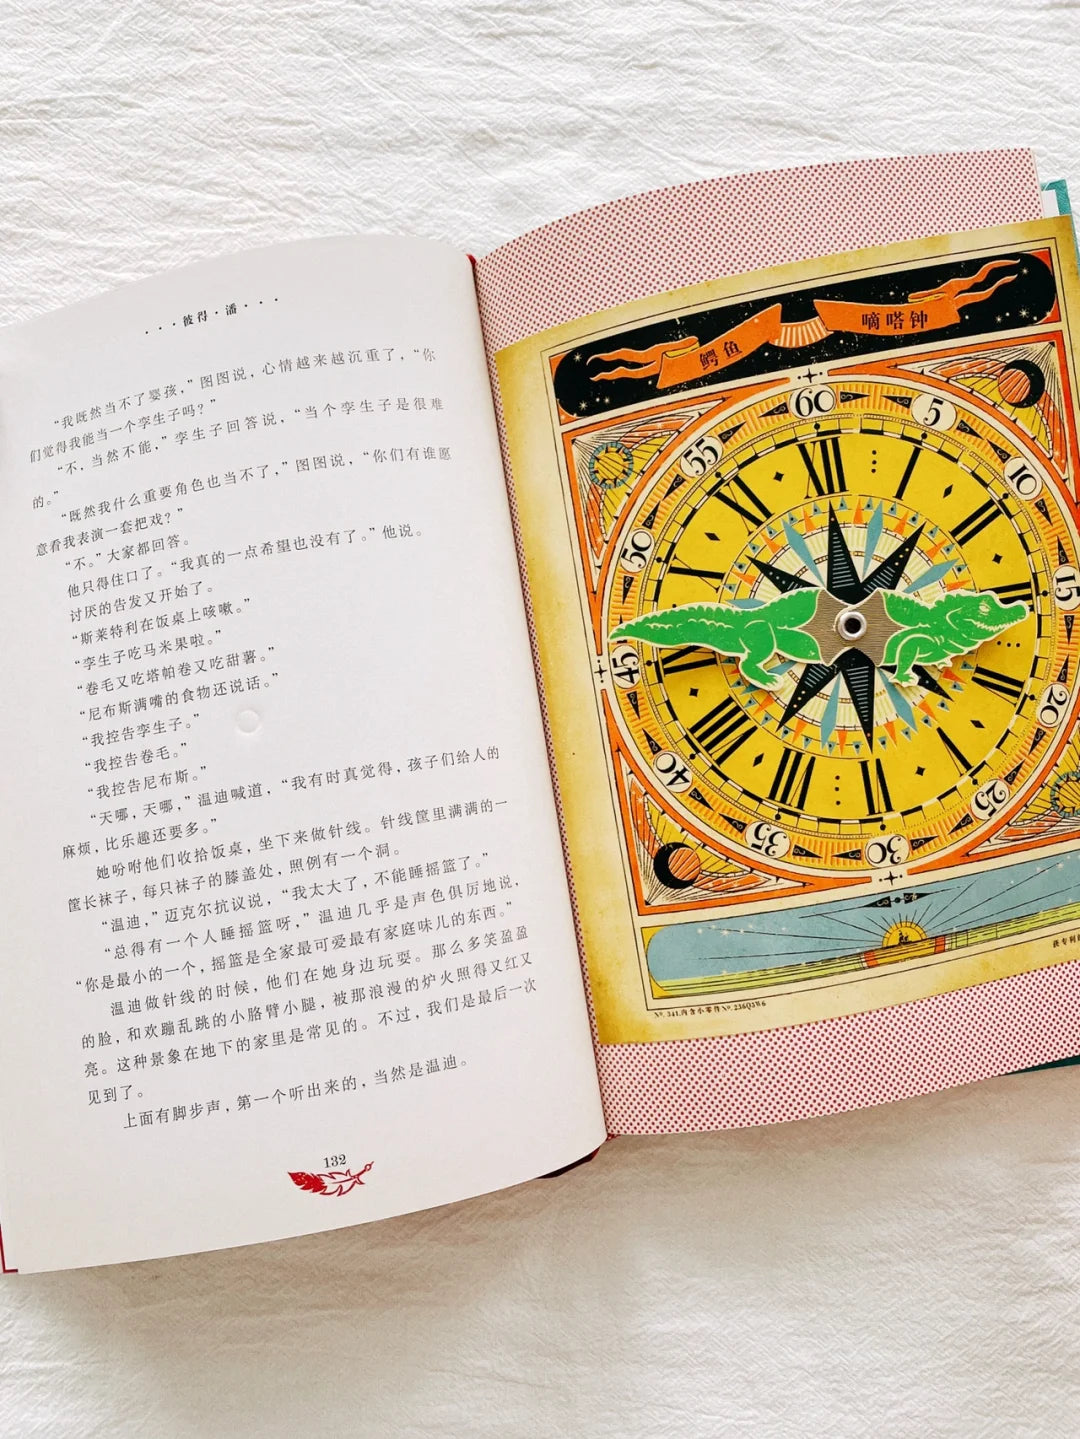 ···彼得·潘···
“我既然当不了婴孩，”图图说，心情越来越沉重了，“你
们觉得我能当一个孪生子吗？”
“不，当然不能，”孪生子回答说，“当个孪生子是很难
的。”
“既然我什么重要角色也当不了，”图图说，“你们有谁愿
意看我表演一套把戏？”
“不。”大家都回答。
他只得住口了。“我真的一点希望也没有了。”他说。
讨厌的告发又开始了。
“斯莱特利在饭桌上咳嗽。”
“孪生子吃马米果啦。”
“卷毛又吃塔帕卷又吃甜薯。”
“尼布斯满嘴的食物还说话。”
“我控告孪生子。”
“我控告卷毛。”
“我控告尼布斯。”
“天哪，天哪，”温迪喊道，“我有时真觉得，孩子们给人的
麻烦，比乐趣还要多。”
她吩咐他们收拾饭桌，坐下来做针线。针线筐里满满的一
筐长袜子，每只袜子的膝盖处，照例有一个洞。
“温迪，”迈克尔抗议说，“我太大了，不能睡摇篮了。”
“总得有一个人睡摇篮呀，”温迪几乎是声色俱厉地说，
“你是最小的一个，摇篮是全家最可爱最有家庭味儿的东西。”
温迪做针线的时候，他们在她身边玩耍。那么多笑盈盈
的脸，和欢蹦乱跳的小胳臂小腿，被那浪漫的炉火照得又红又
亮。这种景象在地下的家里是常见的。不过，我们是最后一次
见到了。
上面有脚步声，第一个听出来的，当然是温迪。
132
鳄鱼
嘀嗒钟
60
5
10
15
20
25
30
35
40
45
50
55
获专利
Nº. 341.内含小零件Nº. 236Q3W6